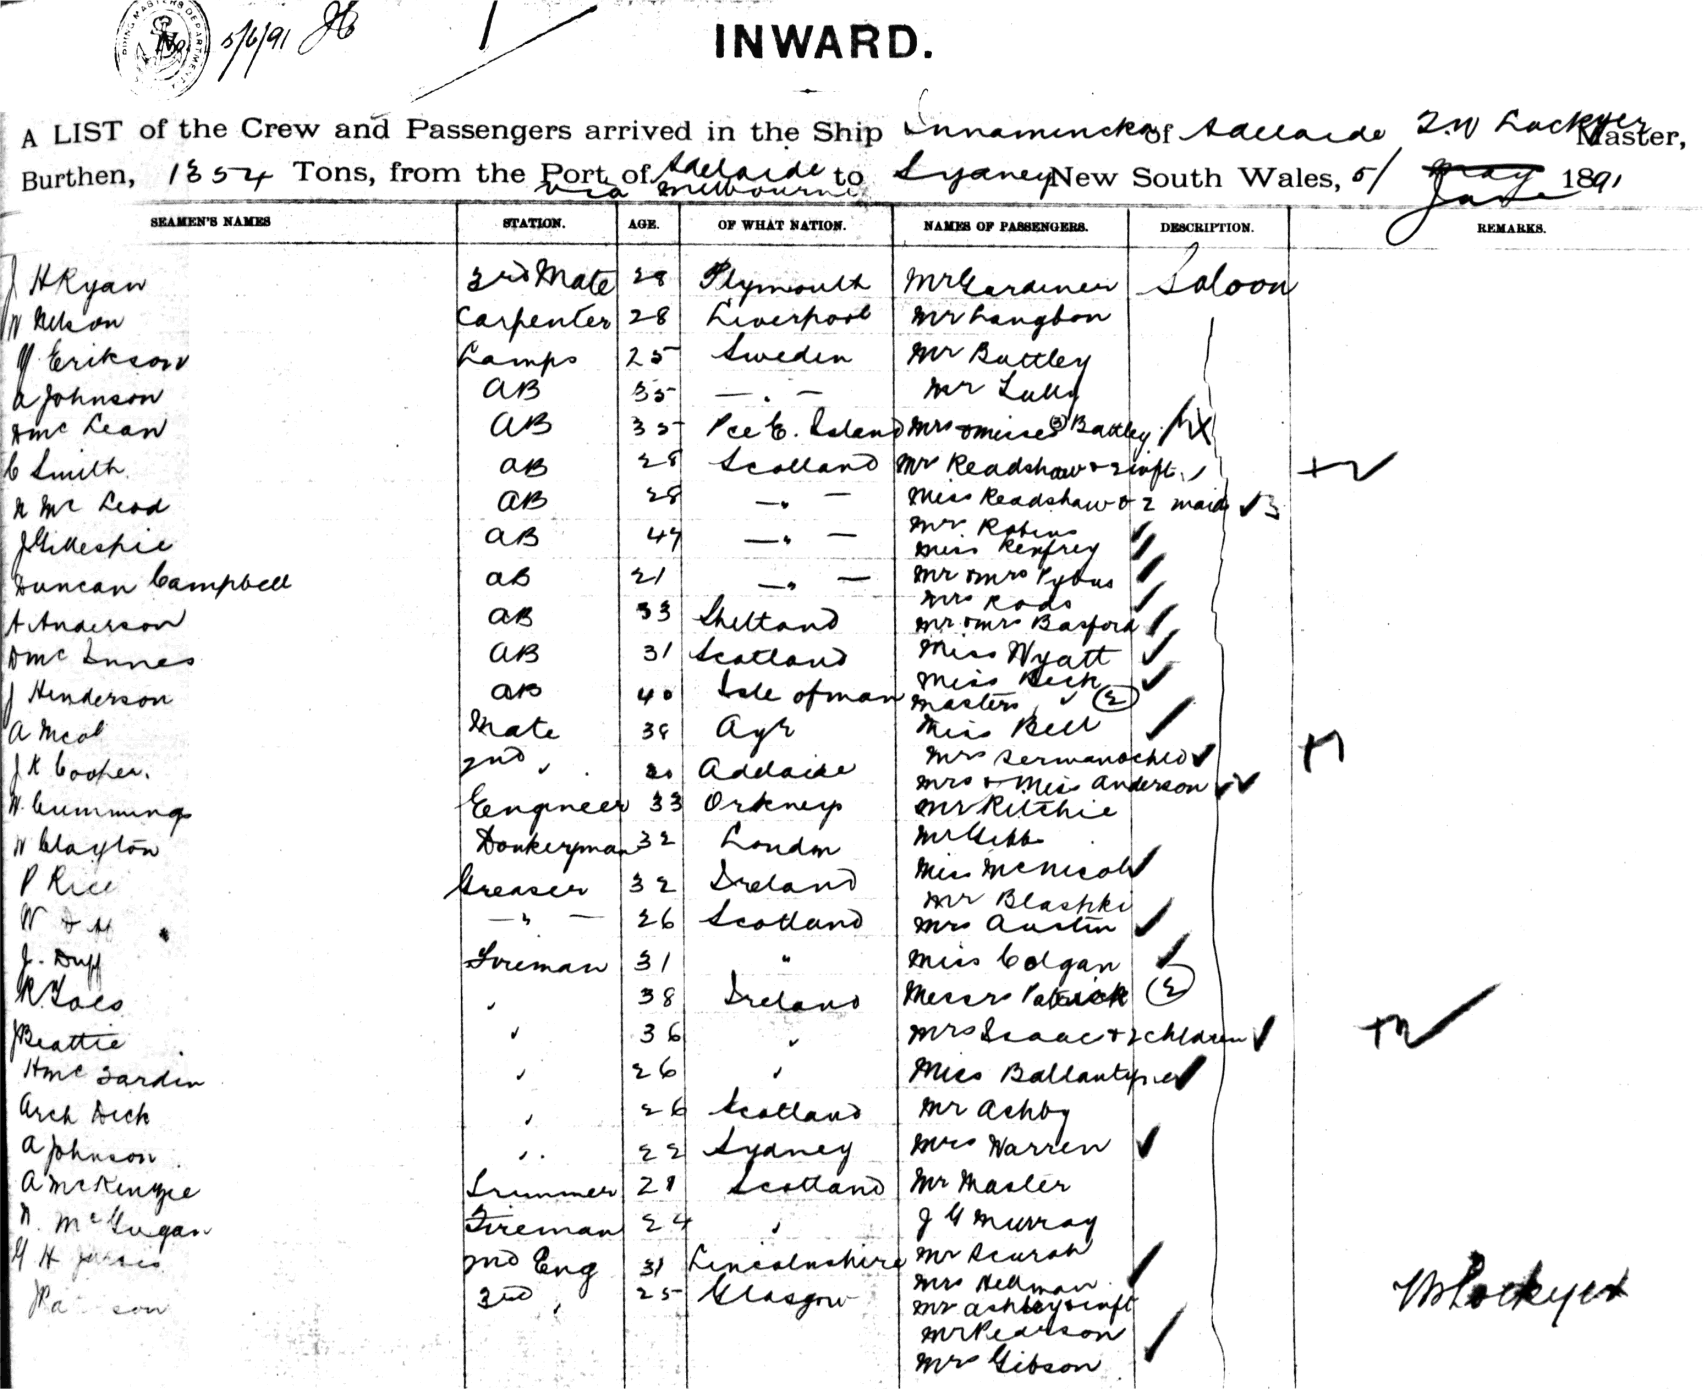 5/6/91
INWARD.
A LIST of the Crew and Passengers arrived in the Ship Innamincka of Adelaide Master,
Burthen, 1354 Tons, from the Port of Adelaide to Sydney New South Wales, 5/ May 1891
via Melbourne June
SEAMEN'S NAMES STATION. AGE. OF WHAT NATION. NAMES OF PASSENGERS. DESCRIPTION. REMARKS.
J H Ryan 3rd Mate 28 Plymouth Mr Gardiner Saloon
W Nelson Carpenter 28 Liverpool Mr Langdon
Erikson Lamps 25 Sweden Mr Battley
A Johnson AB 35 — " — Mr Lully
D Mc Lean AB 35 Pce E. Island Mrs & Misses (3) Battley
C Smith AB 28 Scotland Mr Readshaw & 2 inft.
N Mc Leod AB 28 — " — Miss Readshaw & 2 maids 3
J Gillespie AB 47 — " — Mr Robins
Miss Renfrey
Duncan Campbell AB 21 — " — Mr & Mrs Pybus
Mrs Rods
A Anderson AB 33 Sheltand Mr & Mrs Basford
D Mc Innes AB 31 Scotland Miss Wyatt
Miss Beck
J Henderson AB 40 Isle of man Masters " (2)
A Mcol Mate 38 Ayr Miss Bell
J K Cooper. 2nd " Adelaide Mrs
Mrs & Miss Anderson
W. Cummings Engineer 33 Orkneys Mr Ritchie
W Clayton Donkeyman 32 London Mr Gibb
P Rice Greaser 32 Ireland Miss McNicol
Mr Blashki
W — " — 26 Scotland Mrs Austin
J. Duff Fireman 31 " Miss Colgan
R. " 38 Ireland Messrs Patrick (2)
J Beattie " 36 " Mrs Isaac & 2 children
H Mc " 26 " Miss Ballantyne
Arch Dick " 26 Scotland Mr Ashby
A Johnson " 22 Sydney Mrs Warren
A McKenzie Trimmer 21 Scotland Mr Master
N. McGugan Fireman 24 " J G Murray
G H 2nd Eng 31 Lincolnshire Mr
Mrs Hellman
J 3rd " 25 Glasgow Mr Ashby & inft
Mr Pearson
Mrs Gibson